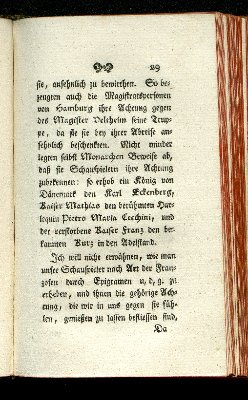 29
sie, ansehnlich zu bewirthen. So be-
zeugten auch die Magistratspersonen
von Hamburg ihre Achtung gegen
des Magister Veltheim seine Trup-
pe, da sie sie bey ihrer Abreise an-
sehnlich beschenkten. Nicht minder
legten selbst Monarchen Beweise ab,
daß sie Schauspielern ihre Achtung
zuerkennen: so erhob ein König von
Dänemark den Karl Eckenberg,
Kaiser Mathias den berühmten Har-
lequin Pietro Maria Cecchini, und
der verstorbene Kaiser Franz den be-
kannten Kurz in den Adelstand.
Ich will nicht erwähnen, wie man
unsre Schauspieler nach Art der Fran-
zosen durch Epigramen u, d, g, zu
erheben, und ihnen die gehörige Ach-
tung, die wir in uns gegen sie füh-
len, genießen zu lassen beflissen sind,
Da